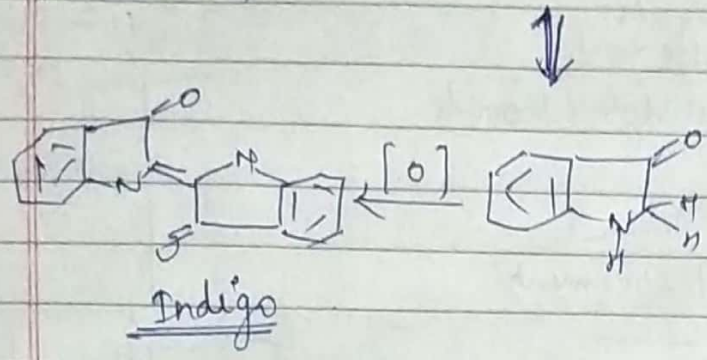 O
N
N
O
[O]
O
H
N
H
H
Indigo